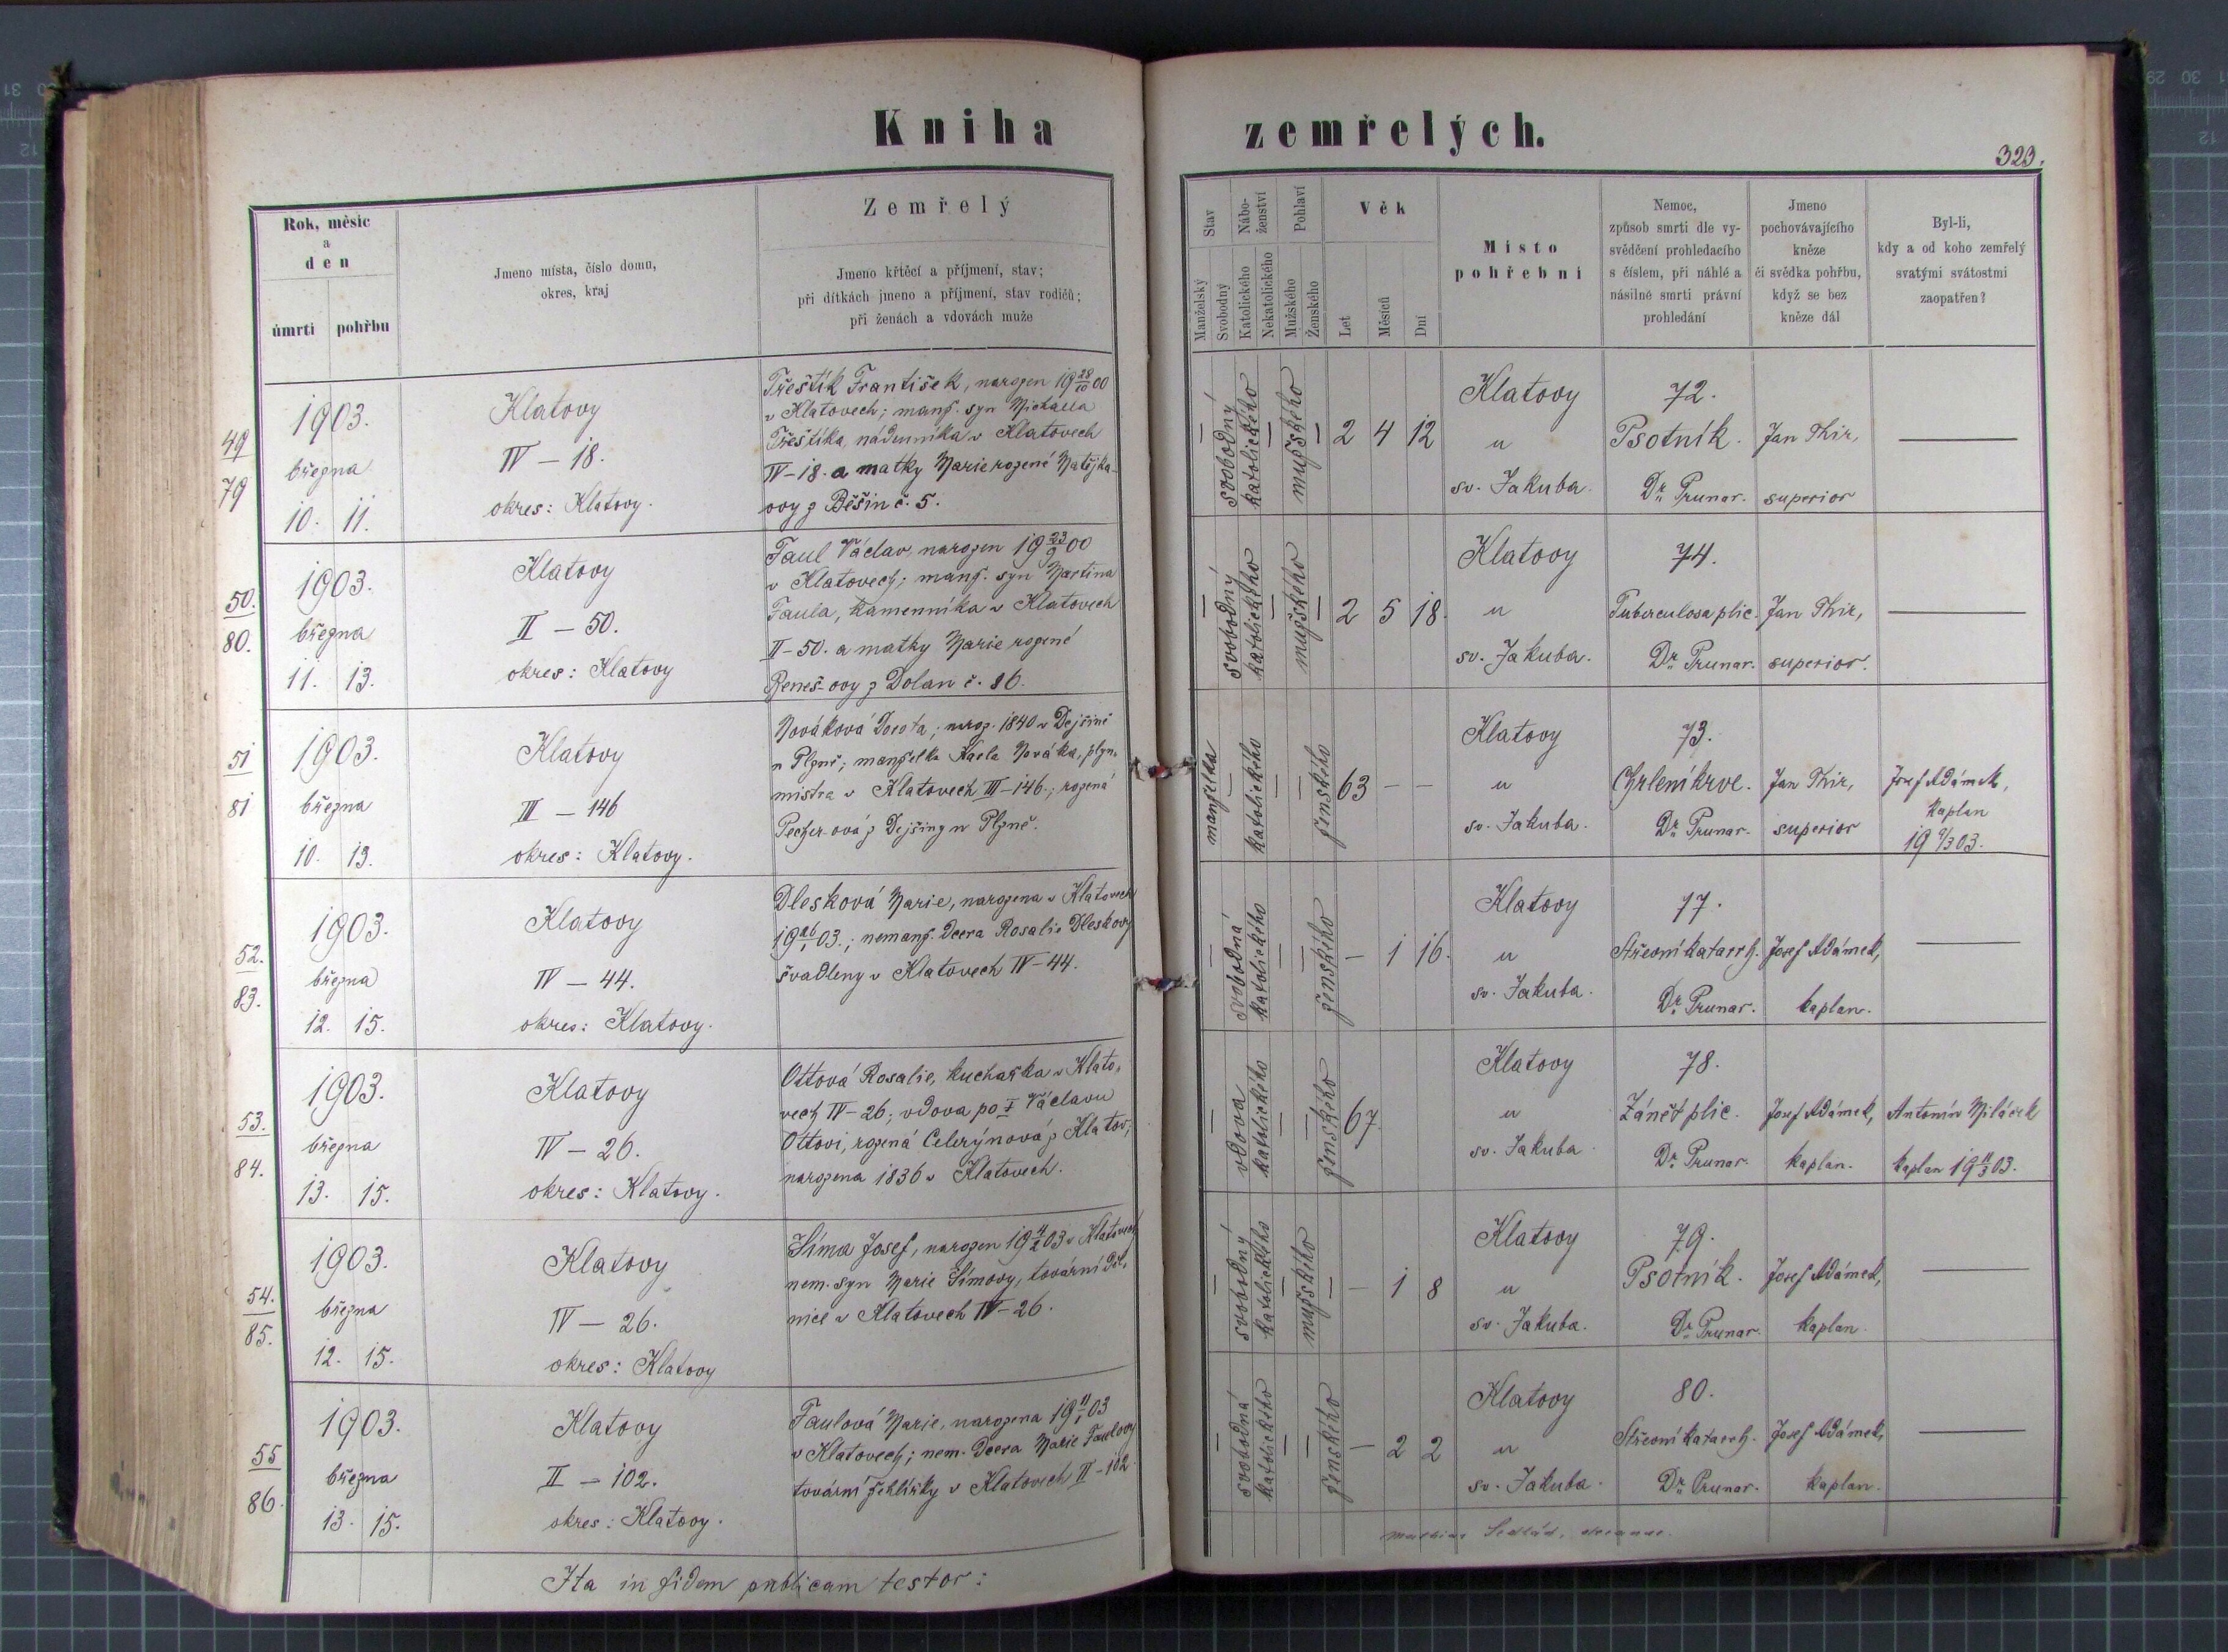 Kniha zemřelých.
323.
Rok, měsíc
a
den
úmrtí pohřbu
Jmeno místa, číslo domu,
okres, kraj
Zemřelý
Jmeno křtěcí a příjmení, stav;
při dítkách jmeno a příjmení, stav rodičů;
při ženách a vdovách muže
Stav
Manželský
Svobodný
Nábo-
ženství
Katolického
Nekatolického
Pohlaví
Mužského
Ženského
Věk
Let
Měsíců
Dní
Místo
pohřební
Nemoc,
způsob smrti dle vy-
svědčení prohledacího
s číslem, při náhlé a
násilné smrti právní
prohledání
Jmeno
pochovávajícího
kněze
či svědka pohřbu,
když se bez
kněze dál
Byl-li,
kdy a od koho zemřelý
svatými svátostmi
zaopatřen?
49
79
1903.
března
10. 11.
Klatovy
IV – 18.
okres: Klatovy.
Třeštík František, narozen 19 28/10 00
v Klatovech; manž. syn Michaela
Třeštíka, nádenníka v Klatovech
IV–18. a matky Marie rozené Matějka-
ovy z Běšin č. 5.
svobodný
katolického
mužského
2 4 12
Klatovy
u
sv. Jakuba.
72.
Psotník.
Dr. Prunar.
Jan Thir,
superior
50.
80.
1903.
března
11. 13.
Klatovy
II – 50.
okres: Klatovy
Faul Václav, narozen 19 23/9 00
v Klatovech; manž. syn Martina
Faula, kamenníka v Klatovech
II–50. a matky Marie rozené
Beneš-ovy z Dolan č. 86.
svobodný
katolického
mužského
2 5 18.
Klatovy
u
sv. Jakuba.
74.
Tuberculosa plic.
Dr. Prunar.
Jan Thir,
superior.
51
81
1903.
března
10. 13.
Klatovy
III – 146
okres: Klatovy.
Nováková Dorota; naroz. 1840 v Dejšině
u Plzně; manželka Karla Nováka, plyn.
mistra v Klatovech III–146.; rozená
Pecher-ová z Dejšiny u Plzně.
manželka
katolického
ženského
63 – –
Klatovy
u
sv. Jakuba.
73.
Chrlení krve.
Dr. Prunar.
Jan Thir,
superior
Josef Adámek,
kaplan
19 9/3 03.
52.
83.
1903.
března
12. 15.
Klatovy
IV – 44.
okres: Klatovy.
Dlesková Marie, narozena v Klatovech
19 26/1 03.; nemanž. dcera Rosalie Dleskovy
švadleny v Klatovech IV–44.
svobodná
katolického
ženského
– 1 16.
Klatovy
u
sv. Jakuba.
77.
Střevní katarrh.
Dr. Prunar.
Josef Adámek,
kaplan.
53.
84.
1903.
března
13. 15.
Klatovy
IV – 26.
okres: Klatovy.
Ottová Rosalie, kuchařka v Klato-
vech IV–26; vdova po † Václavu
Ottovi, rozená Celerýnová z Klatov;
narozena 1836 v Klatovech.
vdova
katolického
ženského
67
Klatovy
u
sv. Jakuba
78.
Zánět plic.
Dr. Prunar.
Josef Adámek,
kaplan.
Antonín Miláček
kaplan 19 11/3 03.
54.
85.
1903.
března
12. 15.
Klatovy
IV – 26.
okres: Klatovy
Šíma Josef, narozen 19 4/2 03 v Klatovech
nem. syn Marie Šímovy, tovární děl-
nice v Klatovech IV–26.
svobodný
katolického
mužského
– 1 8
Klatovy
u
sv. Jakuba.
79.
Psotník.
Dr. Prunar.
Josef Adámek,
kaplan.
55
86.
1903.
března
13. 15.
Klatovy
II – 102.
okres: Klatovy.
Faulová Marie, narozena 19 11/1 03
v Klatovech; nem. dcera Marie Faulovy
tovární žehlířky v Klatovech II–102.
svobodná
katolického
ženského
– 2 2
Klatovy
u
sv. Jakuba.
80.
Střevní katarrh.
Dr. Prunar.
Josef Adámek,
kaplan.
Ita in fidem publicam testor: